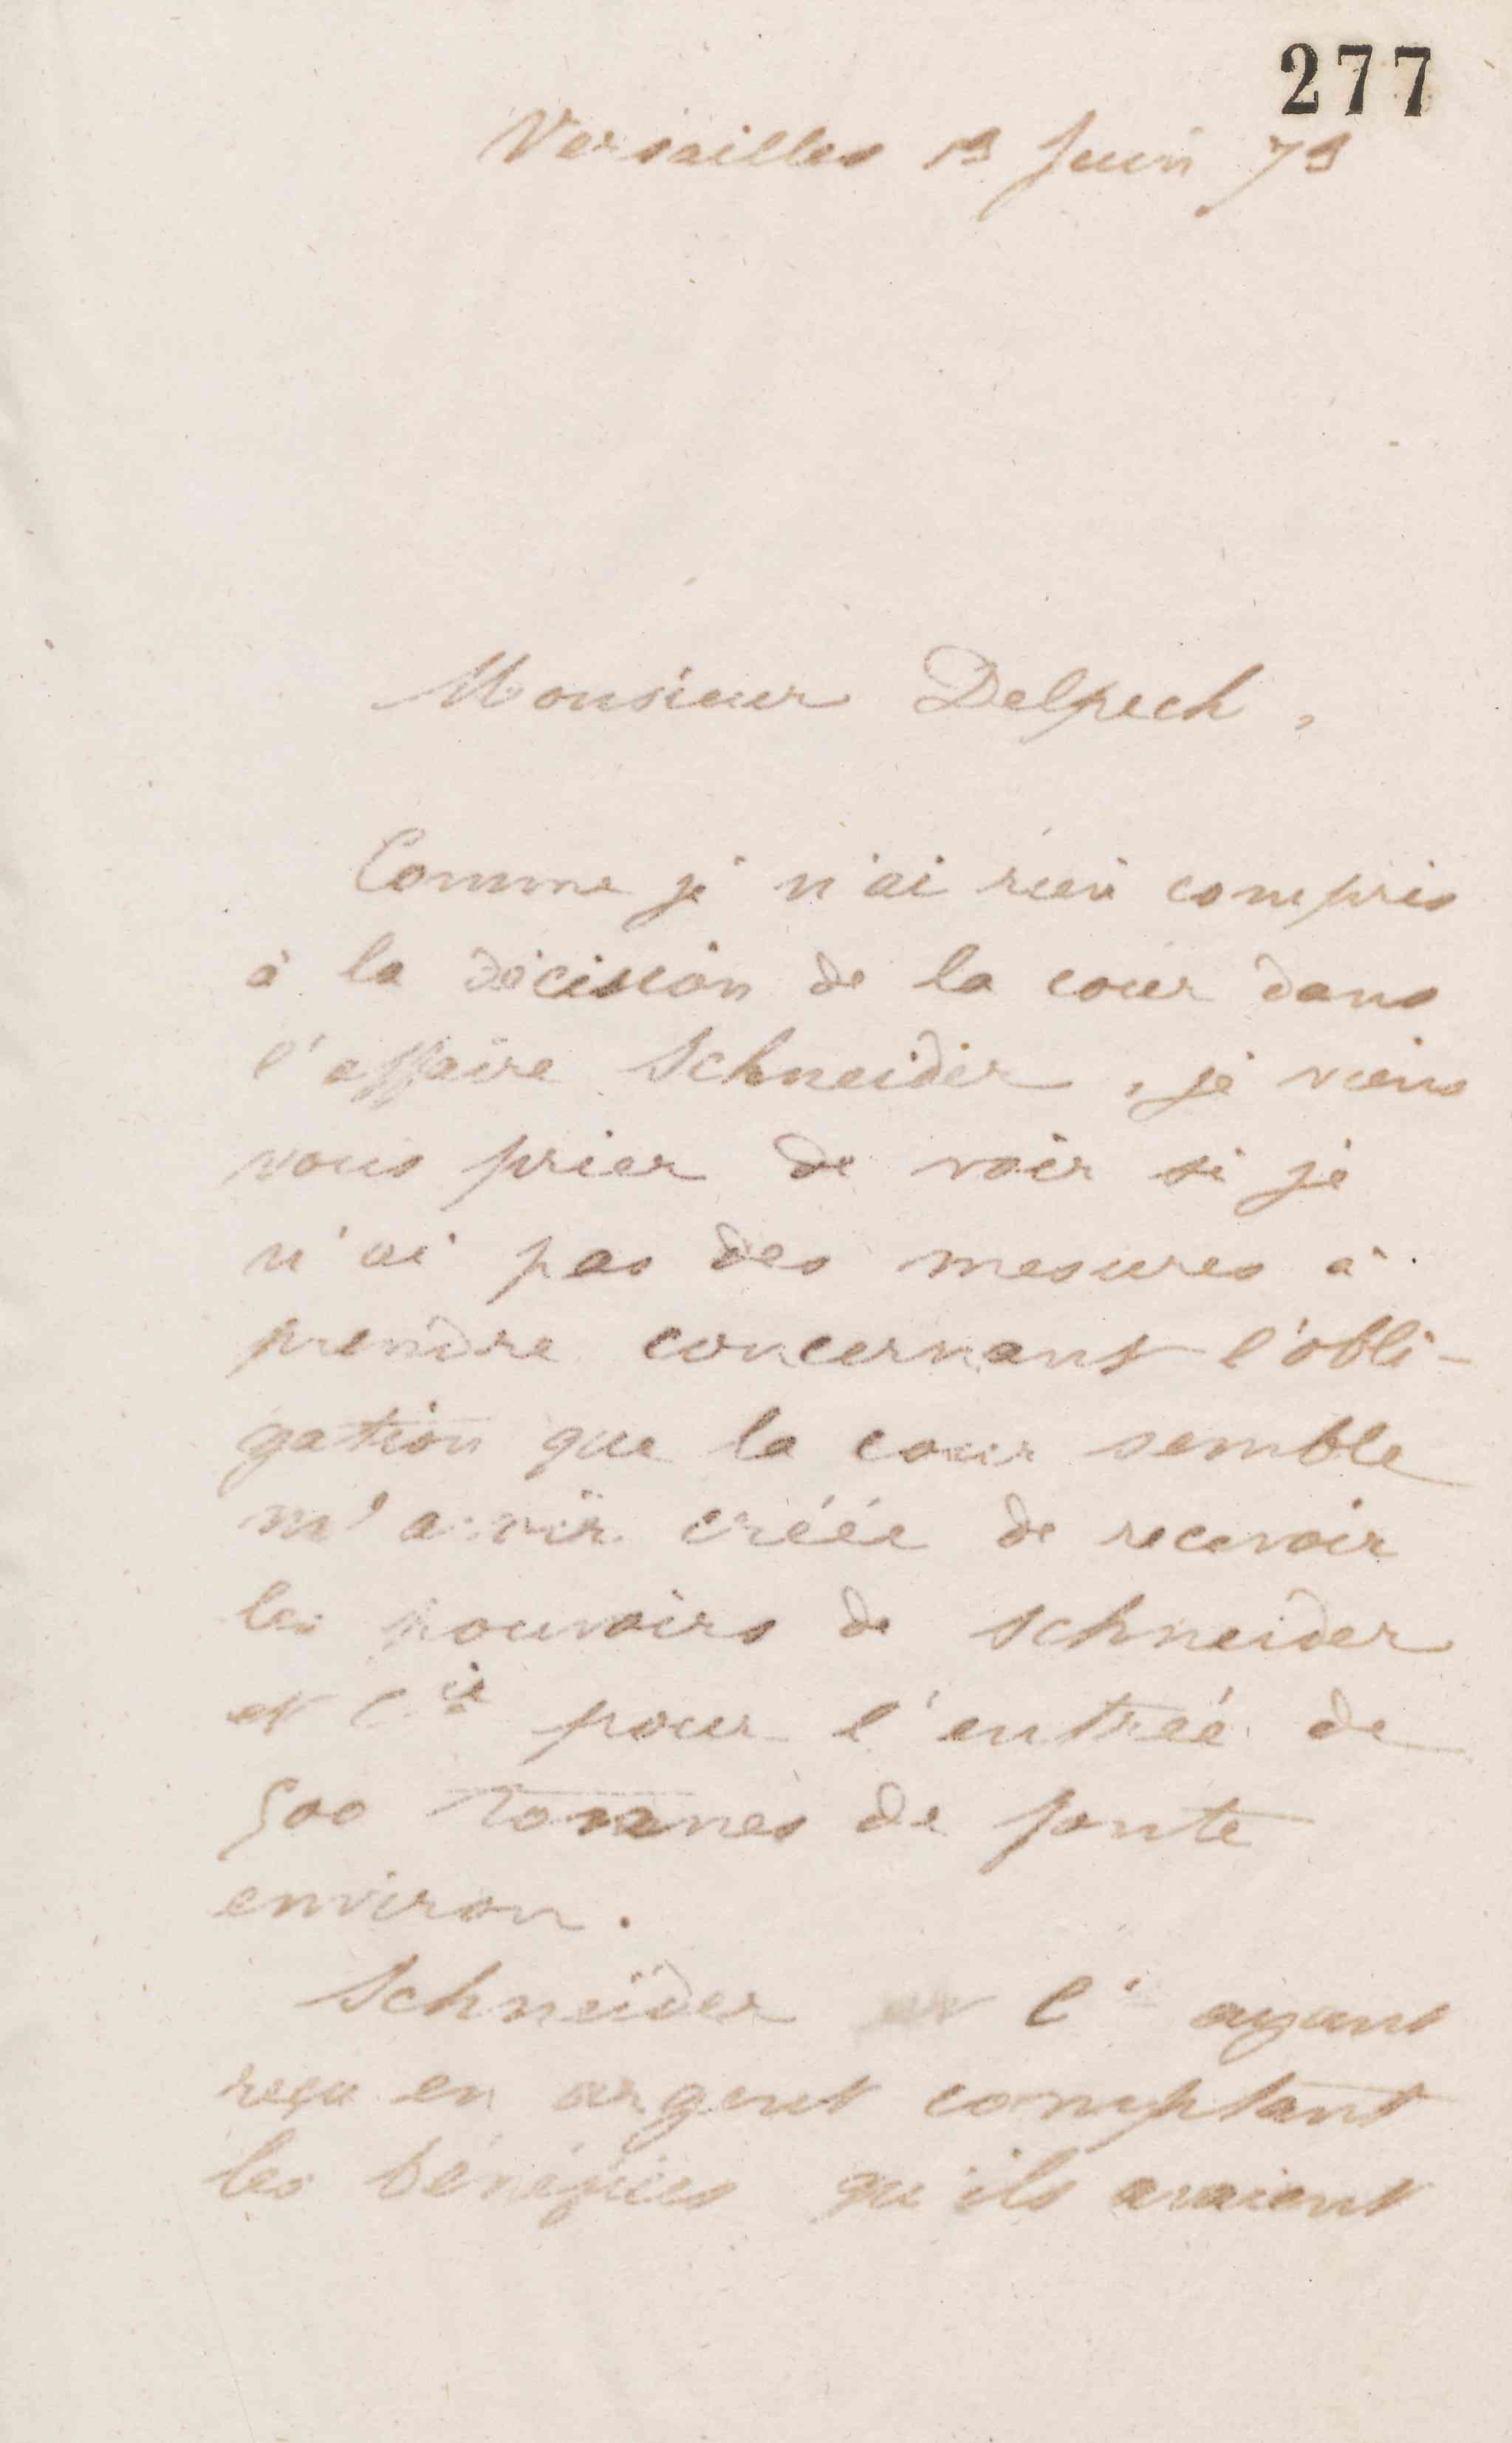 277
Versailles 19 Juin 79
Monsieur Delpech,
Comme je n'ai rien compris
à la décision de la cour dans
l'affaire Schneider, je viens
vous prier de voir si je
n'ai pas des mesures à
prendre concernant l'obli-
gation que la cour semble
m'avoir créée de recevoir
les pouvoirs de Schneider
et Cie pour l'entrée de
500 tonnes de fonte
environ.
Schneider l' ayant
reçu en argent comptant
les bénéfices qu'ils avaient